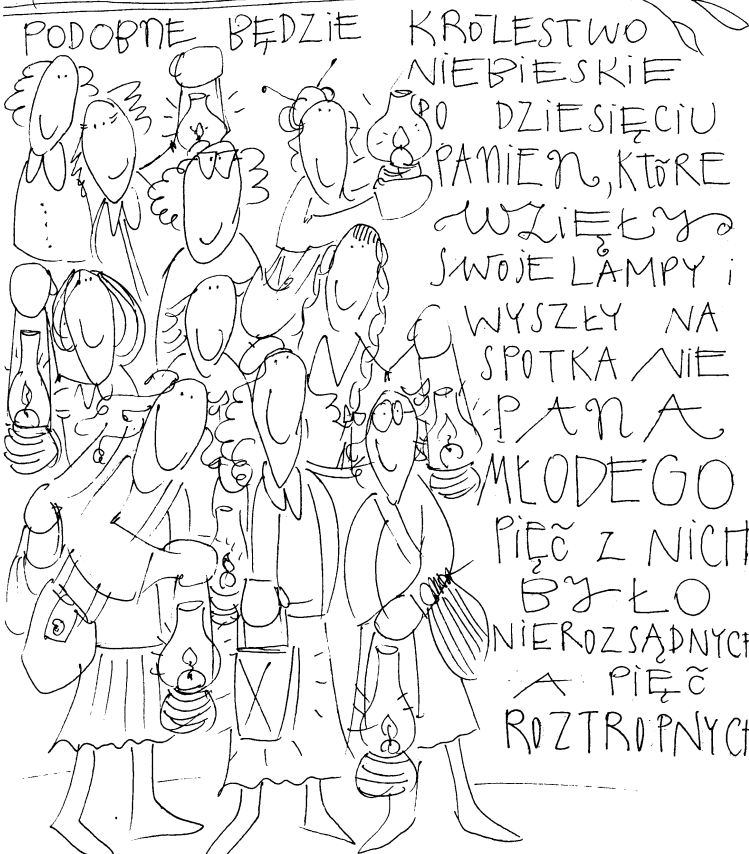 PODOBNE BĘDZIE KRÓLESTWO
NIEBIESKIE
PO DZIESIĘCIU
PANIEN, KTÓRE
WZIĘŁY
SWOJE LAMPY i
WYSZŁY NA
SPOTKANIE
PANA
MŁODEGO
PIĘĆ Z NICH
BYŁO
NIEROZSĄDNYCH
A PIĘĆ
ROZTROPNYCH